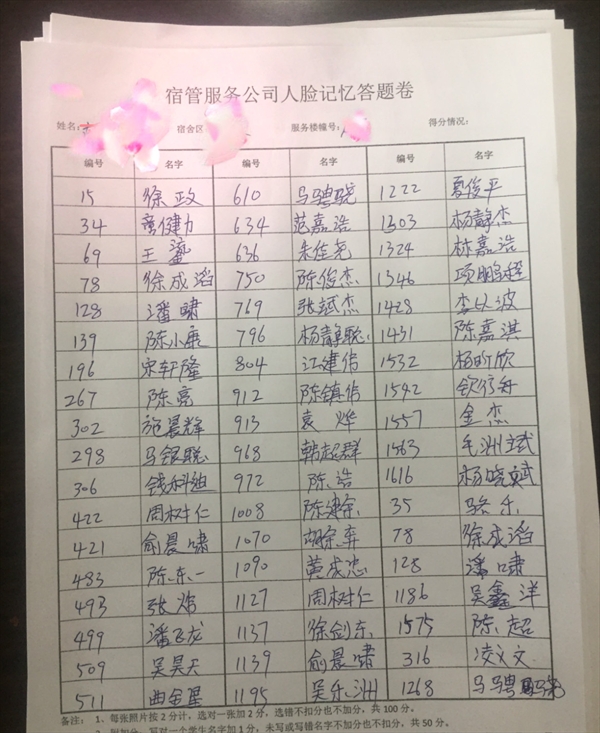 宿管服务公司人脸记忆答题卷
姓名: 宿舍区 服务楼幢号: 得分情况:
编号 名字 编号 名字 编号 名字
15 徐政 610 马骋骁 1222 夏俊平
34 童健力 634 范嘉浩 1303 杨静杰
69 王鎏 636 朱佳尧 1324 林嘉浩
78 徐成滔 750 陈俊杰 1346 项鹏超
128 潘啸 769 张斌杰 1428 李以波
139 陈小康 796 杨静聪 1431 陈嘉淇
196 宋轩隆 804 江建伟 1532 杨昕欣
267 陈亮 912 陈镇伟 1542
302 施晨辉 913 袁烨 1557 金杰
298 马银聪 968 韩超群 1563 毛洲斌
306 钱科迪 972 陈浩 1616 杨晓斌
422 周树仁 1008 陈建余 35 骆乐
421 俞晨啸 1070 胡宗幸 78 徐成滔
483 陈东一 1090 黄成忠 128 潘啸
493 张炜 1127 周树仁 1186 吴鑫洋
499 潘飞龙 1137 徐剑东 1575 陈超
509 吴昊天 1139 俞晨啸 316 凌文文
511 曲金星 1195 吴乐洲 1268 马骋
备注: 1、每张照片按 2 分计，选对一张加 2 分，选错不扣分也不加分，共 100 分。
写对一个学生名字加 1 分，未写或写错名字不加分也不扣分，共 50 分。